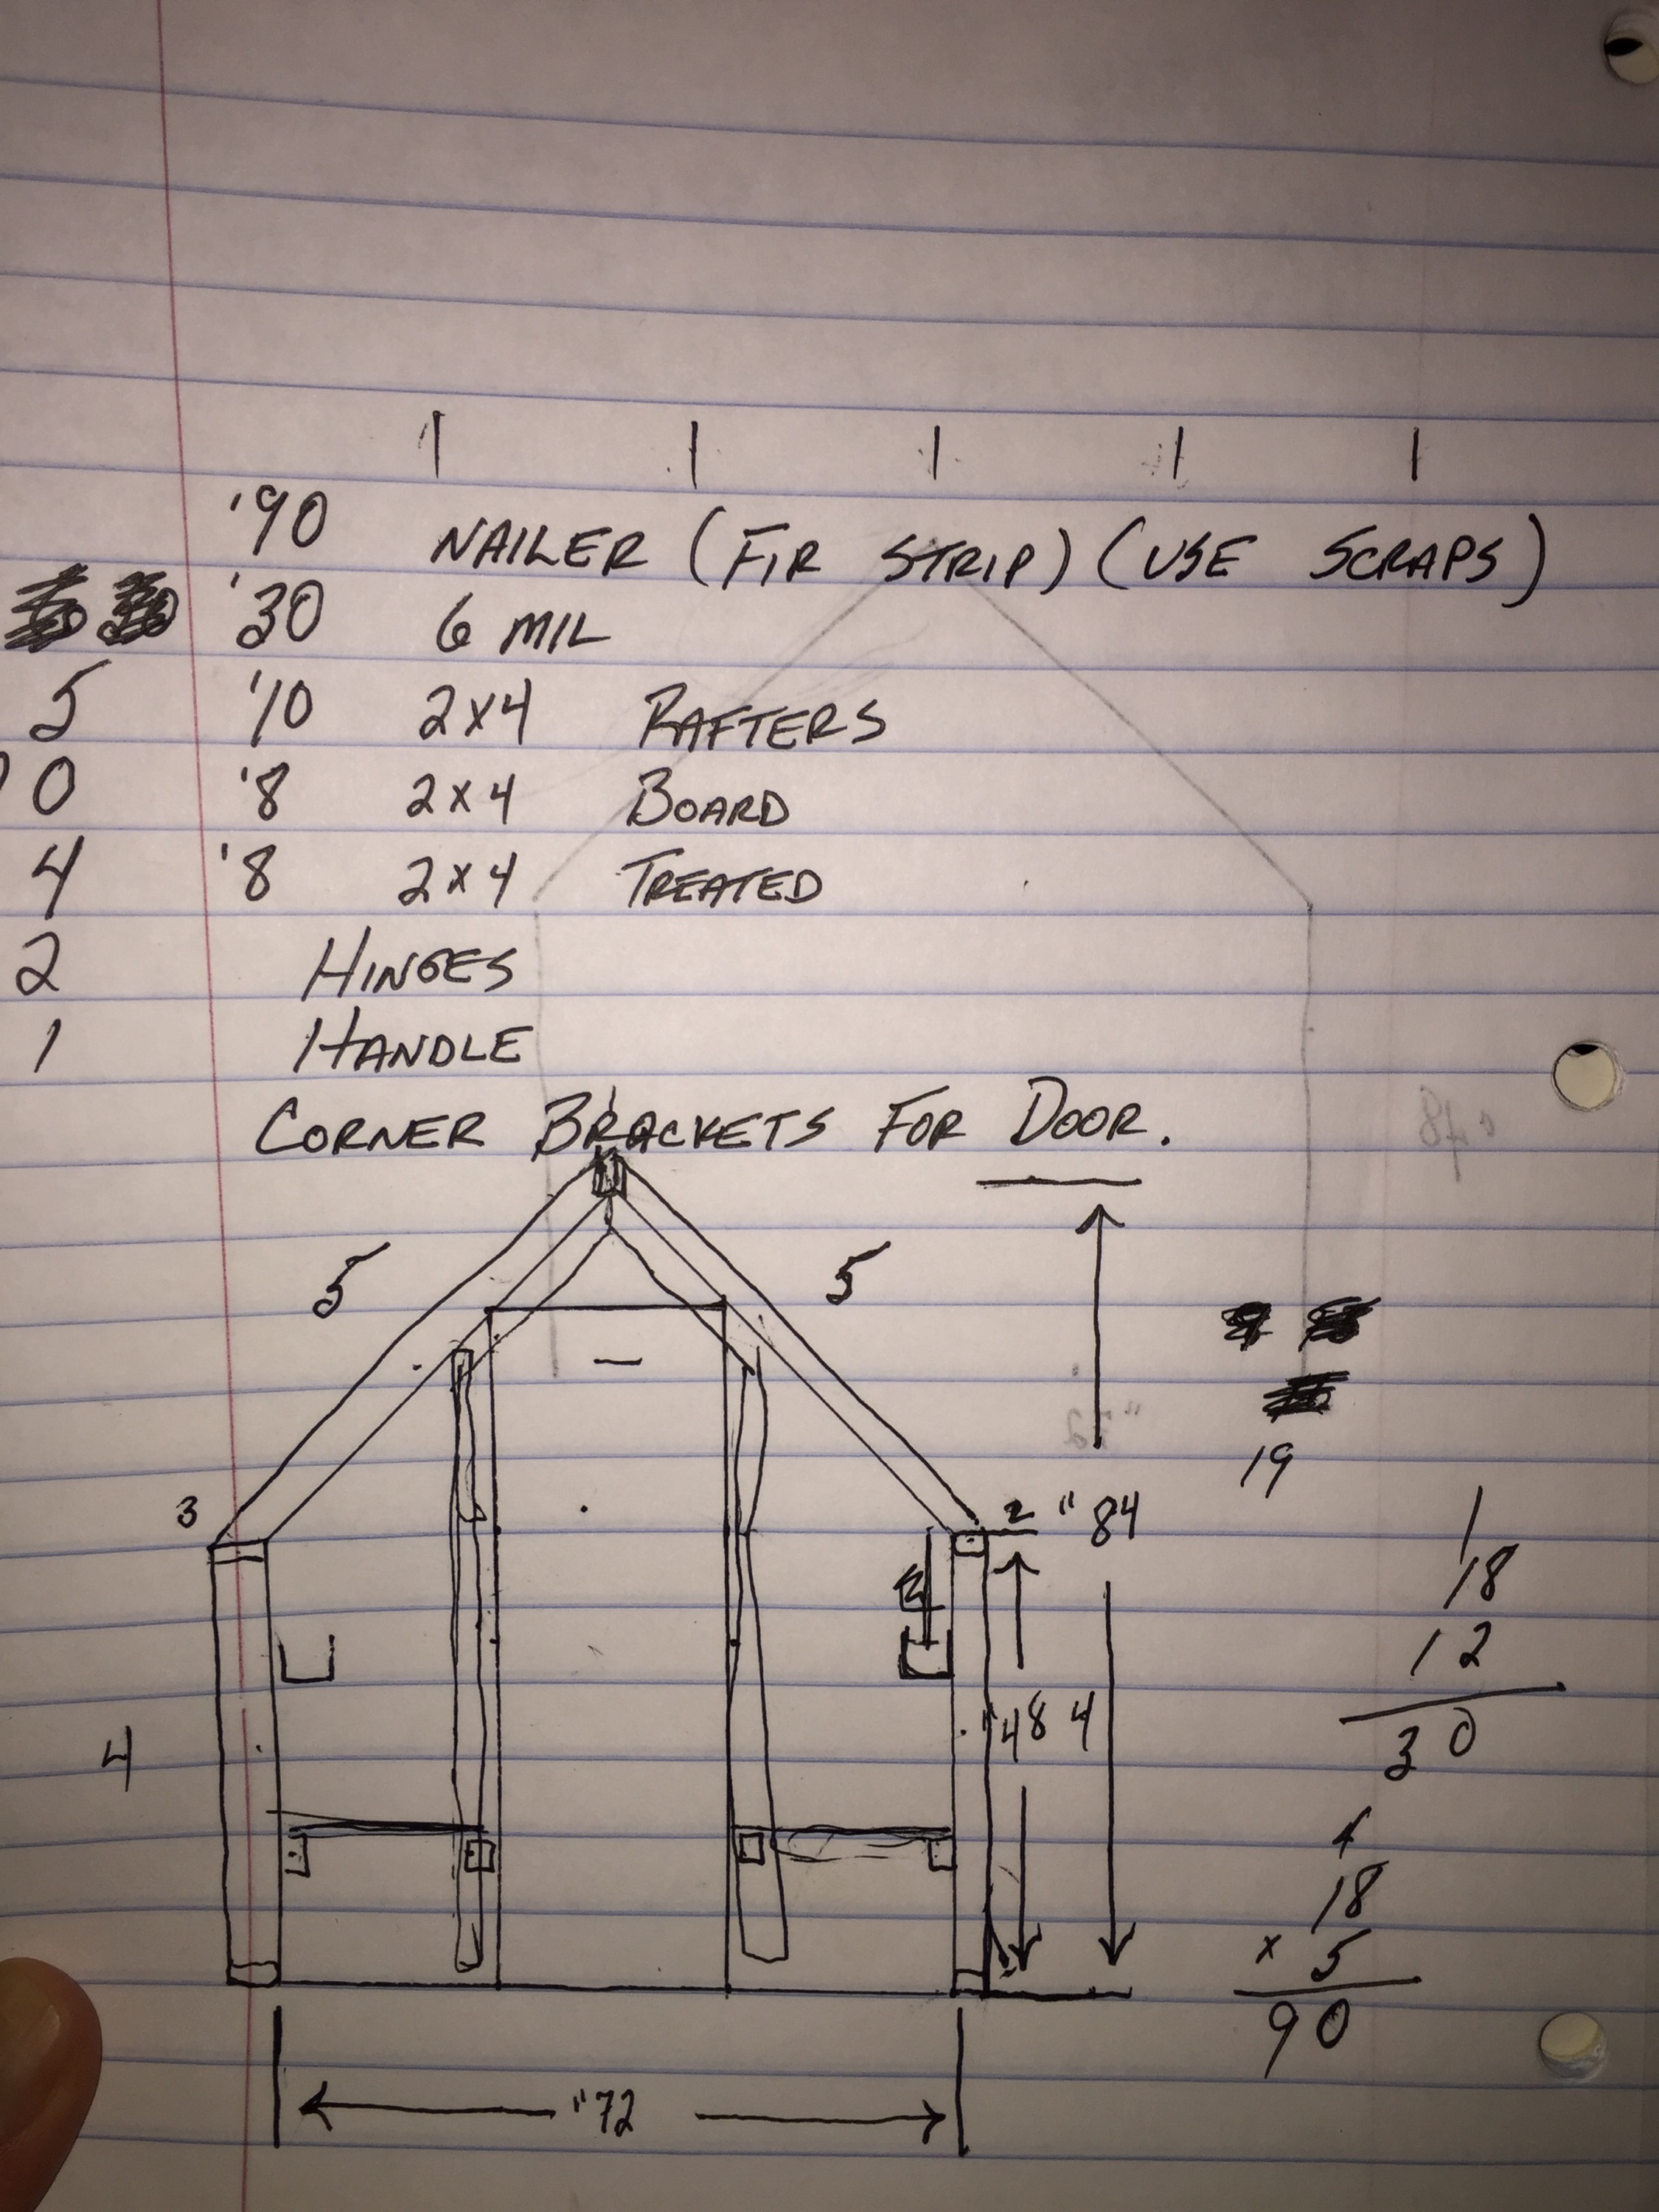 '90 NAILER (FIR STRIP) (USE SCRAPS)
'30 6 MIL
5 '10 2x4 RAFTERS
0 '8 2x4 BOARD
4 '8 2x4 TREATED
2 HINGES
1 HANDLE
CORNER BRACKETS FOR DOOR.
5 5
19
3 2 "84
1
18
12
30
"48 4
4
18
x 5
90
"72